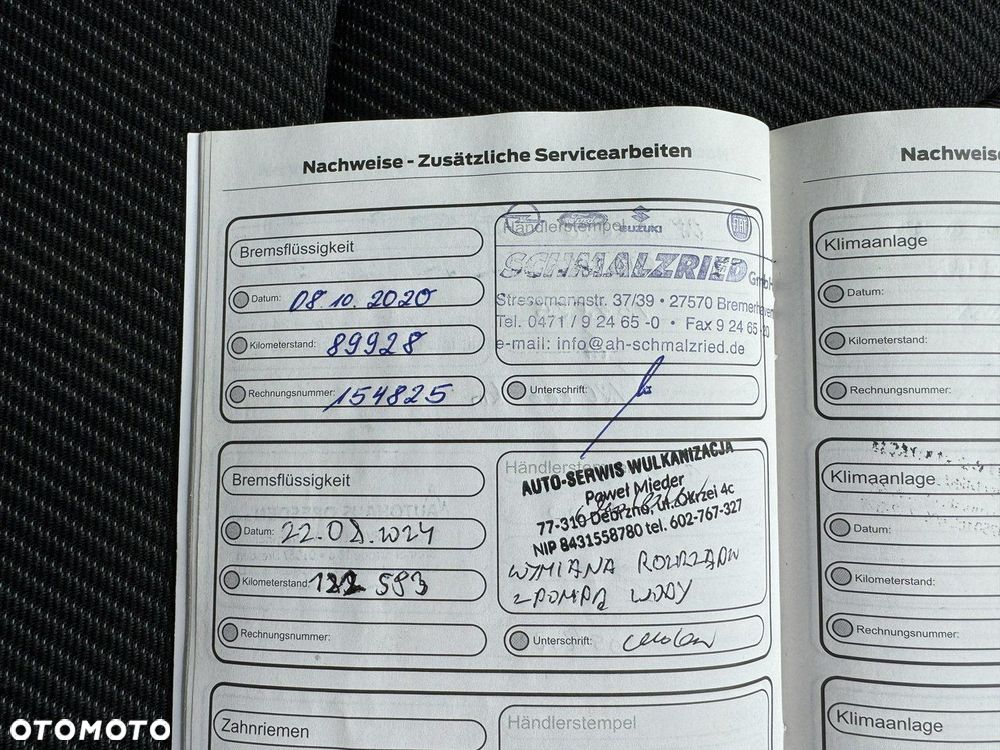 Nachweise - Zusätzliche Servicearbeiten
Bremsflüssigkeit
Datum: 08 10. 2020
Kilometerstand: 89928
Rechnungsnummer: 154825
Händlerstempel
SUZUKI
FIAT
SCHMALZRIED GmbH
Stresemannstr. 37/39 • 27570 Bremerhaven
Tel. 0471 / 9 24 65 -0 • Fax 9 24 65 -20
e-mail: info@ah-schmalzried.de
Unterschrift:
Bremsflüssigkeit
Datum: 22.08.2024
Kilometerstand: 122 593
Rechnungsnummer:
Händlerstempel
AUTO-SERWIS WULKANIZACJA
Paweł Mieder
77-310 Debrzno, ul. Okrzei 4c
NIP 8431558780 tel. 602-767-327
WYMIANA ROZRZĄDU
Z POMPĄ WODY
Unterschrift:
Zahnriemen
Händlerstempel
Nachweise
Klimaanlage
Datum:
Kilometerstand:
Rechnungsnummer:
Klimaanlage
Datum:
Kilometerstand:
Rechnungsnummer:
Klimaanlage
OTOMOTO